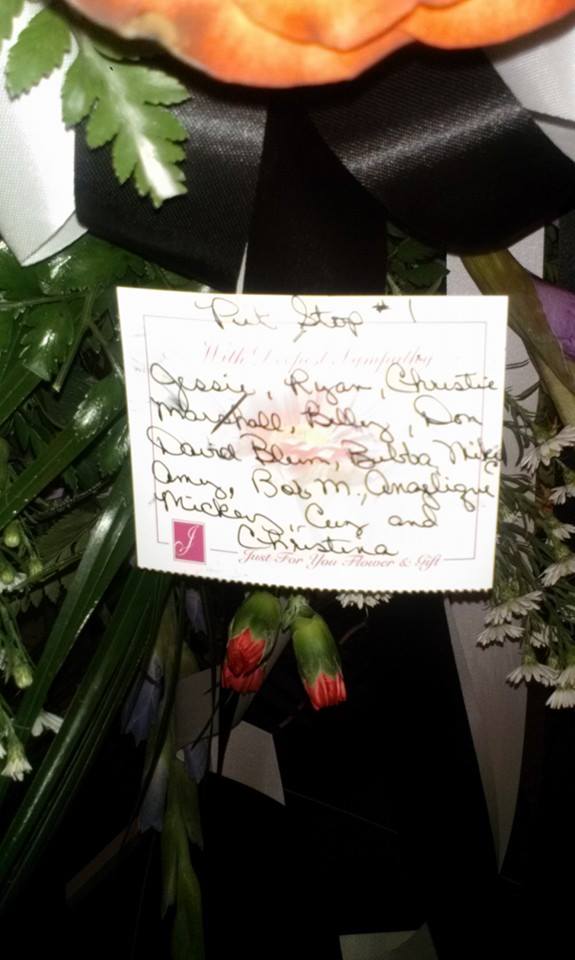 Pit Stop #1
With Deepest Sympathy
Jessie, Ryan, Christie
Marshall, Billy, Don
David Blum, Bubba, Mike
Amy, Bob M., Angelique
Mickey, Cuz and
Christina
J
Just For You Flower & Gift